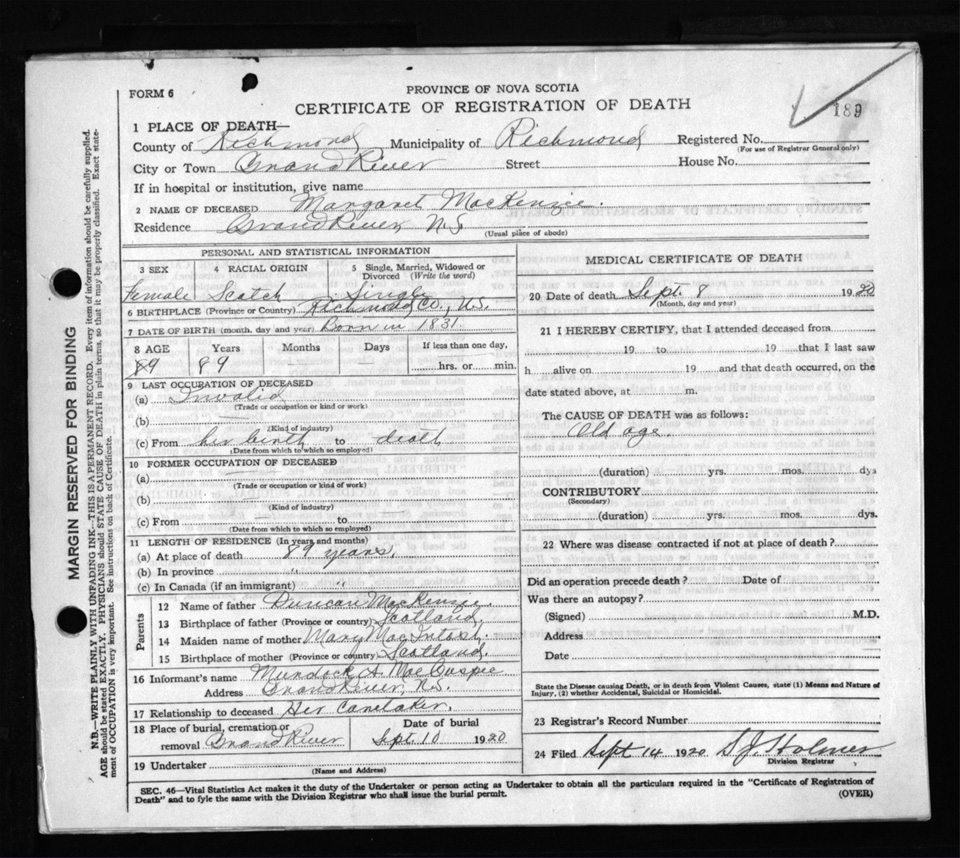 FORM 6
PROVINCE OF NOVA SCOTIA
CERTIFICATE OF REGISTRATION OF DEATH
189
1 PLACE OF DEATH—
County of Richmond Municipality of Richmond Registered No.
(For use of Registrar General only)
City or Town Grand River Street House No.
If in hospital or institution, give name
2 NAME OF DECEASED Margaret MacKenzie.
Residence Grand River, N.S.
(Usual place of abode)
PERSONAL AND STATISTICAL INFORMATION
3 SEX 4 RACIAL ORIGIN 5 Single, Married, Widowed or Divorced (Write the word)
Female Scotch Single
6 BIRTHPLACE (Province or Country) Richmond Co., N.S.
7 DATE OF BIRTH (month, day and year) Born in 1831.
8 AGE Years Months Days If less than one day,
89 89 hrs. or min.
9 LAST OCCUPATION OF DECEASED
(a) Invalid
(Trade or occupation or kind or work)
(b)
(Kind of industry)
(c) From her birth to death
(Date from which to which so employed)
10 FORMER OCCUPATION OF DECEASED
(a)
(Trade or occupation or kind of work)
(b)
(Kind of industry)
(c) From to
(Date from which to which so employed)
11 LENGTH OF RESIDENCE (In years and months)
(a) At place of death 89 years.
(b) In province "
(c) In Canada (if an immigrant) "
Parents
12 Name of father Duncan MacKenzie.
13 Birthplace of father (Province or country) Scotland.
14 Maiden name of mother Mary MacIntosh.
15 Birthplace of mother (Province or country) Scotland.
16 Informant's name Murdock A. MacCuspic
Address Grand River, N.S.
17 Relationship to deceased Her Caretaker.
18 Place of burial, cremation or removal Grand River Date of burial Sept. 10 1920
19 Undertaker
(Name and Address)
MEDICAL CERTIFICATE OF DEATH
20 Date of death Sept. 8 1920
(Month, day and year)
21 I HEREBY CERTIFY, that I attended deceased from
19 to 19 that I last saw
h alive on 19 and that death occurred, on the
date stated above, at m.
The CAUSE OF DEATH was as follows:
Old age.
(duration) yrs. mos. dys
CONTRIBUTORY
(Secondary)
(duration) yrs. mos. dys.
22 Where was disease contracted if not at place of death?
Did an operation precede death? Date of
Was there an autopsy?
(Signed) M.D.
Address
Date
State the Disease causing Death, or in death from Violent Causes, state (1) Means and Nature of
Injury, (2) whether Accidental, Suicidal or Homicidal.
23 Registrar's Record Number
24 Filed Sept 14 1920 S.J. Holmes
Division Registrar
SEC. 46—Vital Statistics Act makes it the duty of the Undertaker or person acting as Undertaker to obtain all the particulars required in the "Certificate of Registration of
Death" and to fyle the same with the Division Registrar who shall issue the burial permit. (OVER)
MARGIN RESERVED FOR BINDING
N.B.—WRITE PLAINLY WITH UNFADING INK—THIS IS A PERMANENT RECORD. Every item of information should be carefully supplied.
AGE should be stated EXACTLY. PHYSICIANS should STATE CAUSE OF DEATH in plain terms, so that it may be properly classified. Exact state-
ment of OCCUPATION is very important. See instructions on back of Certificate.